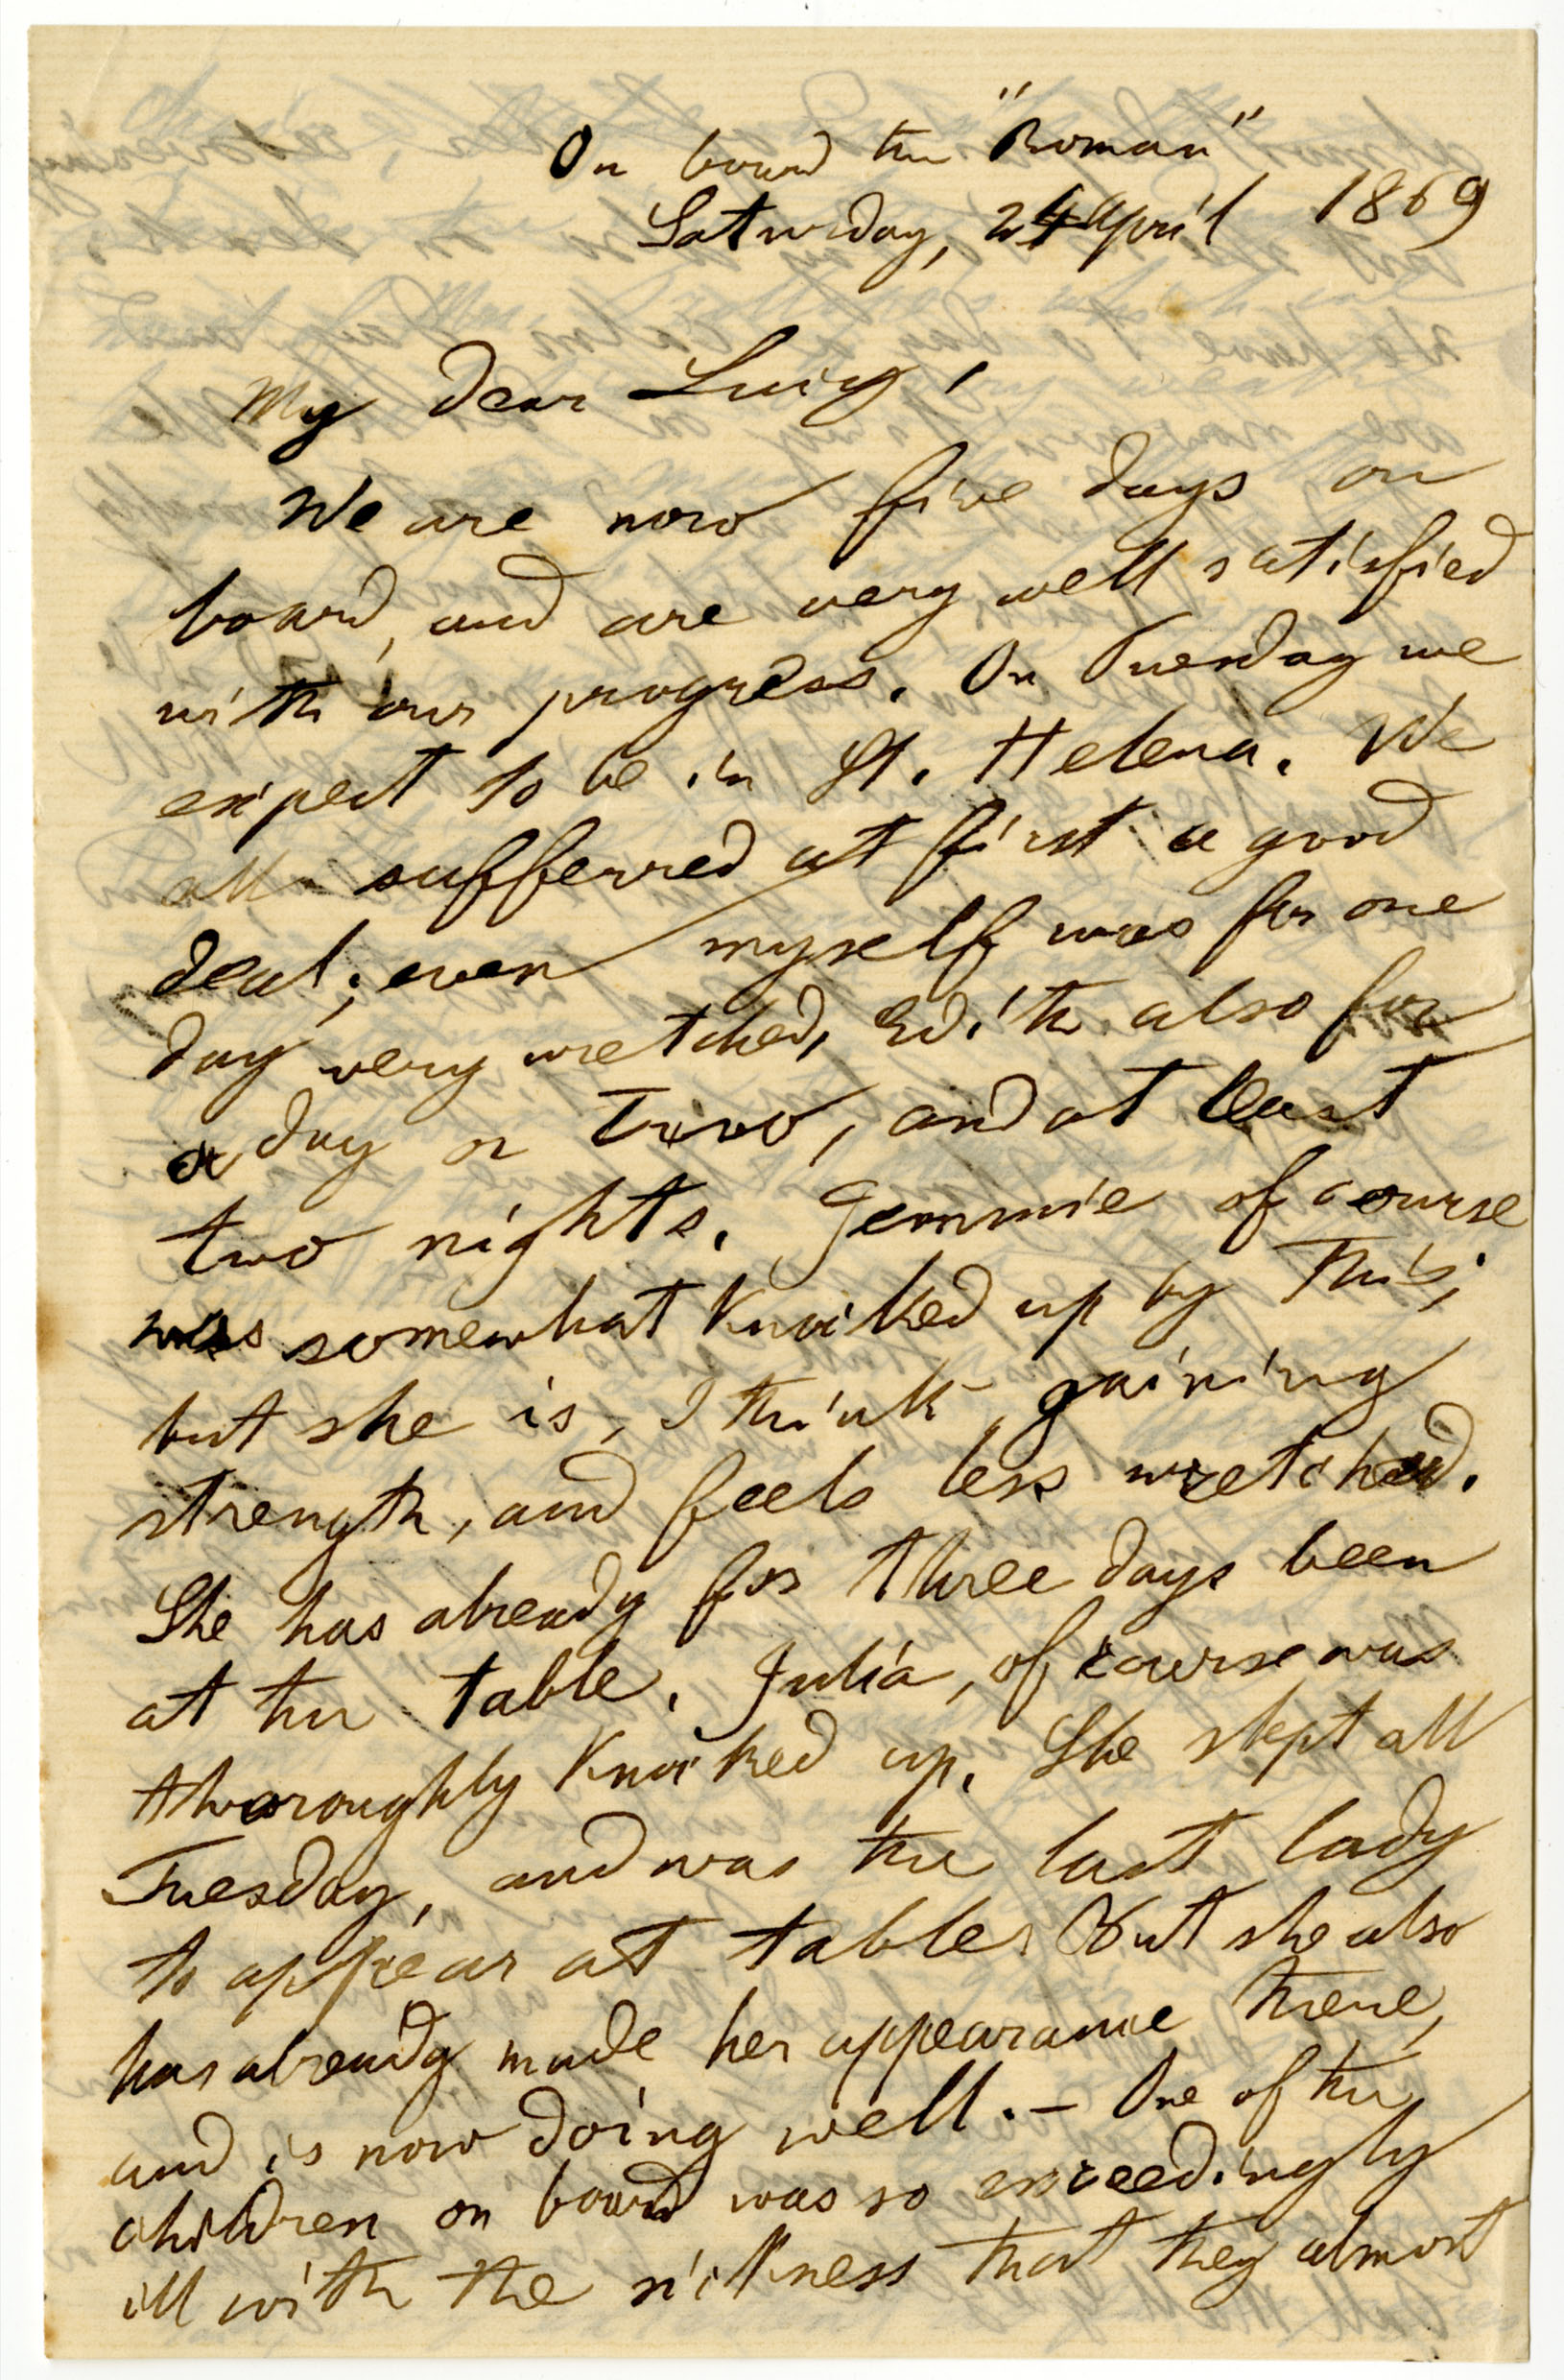 On board the "Roman"
Saturday, 24 April 1869
My dear Lucy,
We are now five days on
board, and are very well satisfied
with our progress. On Tuesday we
expect to be in St. Helena. We
all sufferred at first a good
deal; even myself was for one
day very wretched, Edith also for
a day or two, and at least
two nights. Jemmie of course
was somewhat knocked up by this;
but she is, I think, gaining
strength, and feels less wretched.
She has already for three days been
at the table. Julia, of course was
thoroughly knocked up. She slept all
Tuesday, and was the last lady
to appear at table. But she also
has already made her appearance there,
and is now doing well. - One of the
children on board was so exceedingly
ill with the sickness that they almost